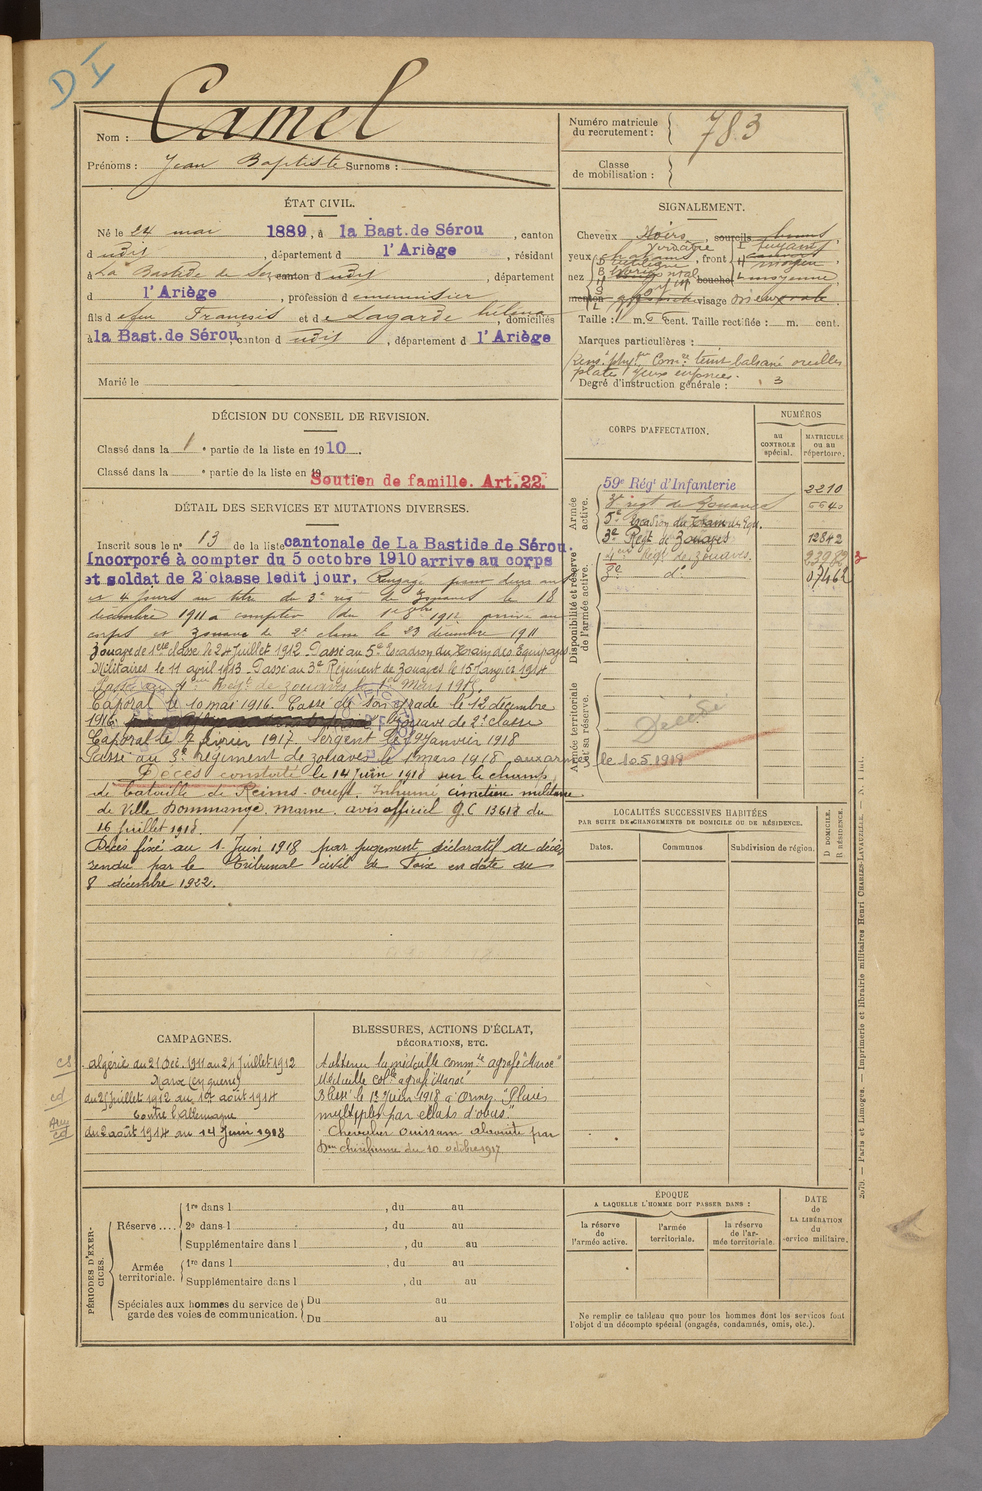 D I
Nom : Camel
Prénoms : Jean Baptiste Surnoms :
Numéro matricule
du recrutement : 783
Classe
de mobilisation :
ÉTAT CIVIL.
Né le 24 mai 1889, à la Bast. de Sérou, canton
d udit, département d l'Ariège, résidant
à La Bastide de Sérou canton d udit, département
d l'Ariège, profession de menuisier
fils de feu François et de Lagarde Hélène, domiciliés
à la Bast. de Sérou, canton d udit, département d l'Ariège
Marié le
SIGNALEMENT.
Cheveux Noirs, sourcils bruns
yeux, front fuyant
moyen
nez, bouche moyenne
menton, visage
Taille : 1 m. cent. Taille rectifiée : m. cent.
Marques particulières :
teint basané oreilles
plates yeux enfoncés.
Degré d'instruction générale : 3
DÉCISION DU CONSEIL DE REVISION.
Classé dans la 1e partie de la liste en 1910.
Classé dans la e partie de la liste en 19
Soutien de famille. Art. 22.
DÉTAIL DES SERVICES ET MUTATIONS DIVERSES.
Inscrit sous le no 13 de la liste cantonale de La Bastide de Sérou.
Incorporé à compter du 5 octobre 1910 arrive au corps
et soldat de 2e classe ledit jour. Rengagé pour deux ans
et 4 jours au titre du 3e rég de Zouaves le 18
décembre 1911 à compter du 1er 8bre 1912 arrivé au
corps et zouave de 2e classe le 23 décembre 1911
Zouave de 1ère classe le 24 Juillet 1912. Passé au 5e Escadron du Train des Equipages
Militaires le 11 avril 1913. Passé au 3e Régiment de Zouaves le 15 Janvier 1914
Passé au 4ème Régt de zouaves le 1er Mars 1915.
Caporal le 10 mai 1916. Cassé de son grade le 12 décembre
1916. Zouave de 2e classe
Caporal le 7 février 1917. Sergent le 29 janvier 1918
Passé au 3e régiment de zouaves le 1er mars 1918, aux armées le 10.5.1918
Décès constaté le 14 Juin 1918 sur le champ
de bataille de Reims-ouest. Inhumé cimetière militaire
de Ville Dommange, Marne. avis officiel G.C 13618 du
16 Juillet 1918.
Décès fixé au 1 Juin 1918 par jugement déclaratif de décès
rendu par le Tribunal civil de Foix en date du
8 décembre 1922.
CORPS D'AFFECTATION.
NUMÉROS
au
CONTROLE
spécial.
MATRICULE
ou au
répertoire.
Armée
active.
59e Régt d'Infanterie 2210
3e régt de Zouaves 6640
5e Escadron du Train des Equ.
3e Régt de Zouaves 12842
Disponibilité et réserve
de l'armée active.
4ème Régt de zouaves.
3e do 07462
Armée territoriale
et sa réserve.
Décédé
LOCALITÉS SUCCESSIVES HABITÉES
PAR SUITE DE CHANGEMENTS DE DOMICILE OU DE RÉSIDENCE.
Dates.
Communes
Subdivision de région.
D DOMICILE.
R RÉSIDENCE.
CAMPAGNES.
Algérie du 21 Déc. 1911 au 24 Juillet 1912
Maroc (en guerre)
du 25 Juillet 1912 au 1er août 1914
Contre l'Allemagne
du 2 août 1914 au 14 Juin 1918
BLESSURES, ACTIONS D'ÉCLAT,
DÉCORATIONS, ETC.
A obtenu la médaille comm.ve agrafe "Maroc"
Médaille col.le agrafe "Maroc"
Blessé le 1er Juin 1918 à Ormes "Plaies
multiples par éclats d'obus."
Chevalier Ouissam alaouite par
Don chérifienne du 10 octobre 1917
PÉRIODES D'EXERCICES.
Réserve ....
1re dans l, du au
2e dans l, du au
Supplémentaire dans l, du au
Armée
territoriale.
1re dans l, du au
Supplémentaire dans l, du au
Spéciales aux hommes du service de
garde des voies de communication.
Du au
Du au
ÉPOQUE
A LAQUELLE L'HOMME DOIT PASSER DANS :
la réserve
de
l'armée active.
l'armée
territoriale.
la réserve
de l'ar-
mée territoriale.
DATE
de
LA LIBÉRATION
du
service militaire.
Ne remplir ce tableau que pour les hommes dont les services font
l'objet d'un décompte spécial (engagés, condamnés, omis, etc.).
Paris et Limoges. — Imprimerie et librairie militaires Henri CHARLES-LAVAUZELLE.